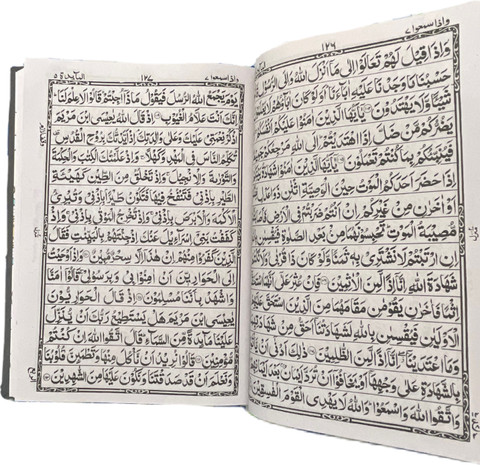 واذا سمعوا ٧
١٢٦
وَاِذَا قِيْلَ لَهُمْ تَعَالَوْا اِلٰى مَآ اَنْزَلَ اللّٰهُ وَاِلَى الرَّسُوْلِ قَالُوْا
حَسْبُنَا مَا وَجَدْنَا عَلَيْهِ اٰبَآءَنَا اَوَلَوْ كَانَ اٰبَآؤُهُمْ لَا يَعْلَمُوْنَ
شَيْئًا وَّلَا يَهْتَدُوْنَ يٰٓاَيُّهَا الَّذِيْنَ اٰمَنُوْا عَلَيْكُمْ اَنْفُسَكُمْ لَا
يَضُرُّكُمْ مَّنْ ضَلَّ اِذَا اهْتَدَيْتُمْ اِلَى اللّٰهِ مَرْجِعُكُمْ جَمِيْعًا
فَيُنَبِّئُكُمْ بِمَا كُنْتُمْ تَعْمَلُوْنَ يٰٓاَيُّهَا الَّذِيْنَ اٰمَنُوْا شَهَادَةُ بَيْنِكُمْ
اِذَا حَضَرَ اَحَدَكُمُ الْمَوْتُ حِيْنَ الْوَصِيَّةِ اثْنٰنِ ذَوَا عَدْلٍ مِّنْكُمْ
اَوْ اٰخَرٰنِ مِنْ غَيْرِكُمْ اِنْ اَنْتُمْ ضَرَبْتُمْ فِي الْاَرْضِ فَاَصَابَتْكُمْ
مُّصِيْبَةُ الْمَوْتِ تَحْبِسُوْنَهُمَا مِنْ بَعْدِ الصَّلٰوةِ فَيُقْسِمٰنِ بِاللّٰهِ
اِنِ ارْتَبْتُمْ لَا نَشْتَرِيْ بِهٖ ثَمَنًا وَّلَوْ كَانَ ذَا قُرْبٰى وَلَا نَكْتُمُ
شَهَادَةَ اللّٰهِ اِنَّآ اِذًا لَّمِنَ الْاٰثِمِيْنَ فَاِنْ عُثِرَ عَلٰٓى اَنَّهُمَا اسْتَحَقَّآ
اِثْمًا فَاٰخَرٰنِ يَقُوْمٰنِ مَقَامَهُمَا مِنَ الَّذِيْنَ اسْتَحَقَّ عَلَيْهِمُ
الْاَوْلَيٰنِ فَيُقْسِمٰنِ بِاللّٰهِ لَشَهَادَتُنَآ اَحَقُّ مِنْ شَهَادَتِهِمَا
وَمَا اعْتَدَيْنَآ اِنَّآ اِذًا لَّمِنَ الظّٰلِمِيْنَ ذٰلِكَ اَدْنٰٓى اَنْ يَّاْتُوْا
بِالشَّهَادَةِ عَلٰى وَجْهِهَآ اَوْ يَخَافُوْٓا اَنْ تُرَدَّ اَيْمَانٌۢ بَعْدَ اَيْمَانِهِمْ
وَاتَّقُوا اللّٰهَ وَاسْمَعُوْا وَاللّٰهُ لَا يَهْدِي الْقَوْمَ الْفٰسِقِيْنَ
واذا سمعوا ٧
١٢٧
المآئدة ٥
يَوْمَ يَجْمَعُ اللّٰهُ الرُّسُلَ فَيَقُوْلُ مَاذَآ اُجِبْتُمْ قَالُوْا لَا عِلْمَ لَنَا
اِنَّكَ اَنْتَ عَلَّامُ الْغُيُوْبِ اِذْ قَالَ اللّٰهُ يٰعِيْسَى ابْنَ مَرْيَمَ
اذْكُرْ نِعْمَتِيْ عَلَيْكَ وَعَلٰى وَالِدَتِكَ اِذْ اَيَّدْتُّكَ بِرُوْحِ الْقُدُسِ
تُكَلِّمُ النَّاسَ فِي الْمَهْدِ وَكَهْلًا وَاِذْ عَلَّمْتُكَ الْكِتٰبَ وَالْحِكْمَةَ
وَالتَّوْرٰىةَ وَالْاِنْجِيْلَ وَاِذْ تَخْلُقُ مِنَ الطِّيْنِ كَهَيْئَةِ
الطَّيْرِ بِاِذْنِيْ فَتَنْفُخُ فِيْهَا فَتَكُوْنُ طَيْرًۢا بِاِذْنِيْ وَتُبْرِئُ
الْاَكْمَهَ وَالْاَبْرَصَ بِاِذْنِيْ وَاِذْ تُخْرِجُ الْمَوْتٰى بِاِذْنِيْ وَاِذْ
كَفَفْتُ بَنِيْٓ اِسْرَآءِيْلَ عَنْكَ اِذْ جِئْتَهُمْ بِالْبَيِّنٰتِ فَقَالَ
الَّذِيْنَ كَفَرُوْا مِنْهُمْ اِنْ هٰذَآ اِلَّا سِحْرٌ مُّبِيْنٌ وَاِذْ اَوْحَيْتُ
اِلَى الْحَوَارِيّٖنَ اَنْ اٰمِنُوْا بِيْ وَبِرَسُوْلِيْ قَالُوْٓا اٰمَنَّا
وَاشْهَدْ بِاَنَّنَا مُسْلِمُوْنَ اِذْ قَالَ الْحَوَارِيُّوْنَ
يٰعِيْسَى ابْنَ مَرْيَمَ هَلْ يَسْتَطِيْعُ رَبُّكَ اَنْ يُّنَزِّلَ
عَلَيْنَا مَآئِدَةً مِّنَ السَّمَآءِ قَالَ اتَّقُوا اللّٰهَ اِنْ كُنْتُمْ
مُّؤْمِنِيْنَ قَالُوْا نُرِيْدُ اَنْ نَّاْكُلَ مِنْهَا وَتَطْمَئِنَّ قُلُوْبُنَا
وَنَعْلَمَ اَنْ قَدْ صَدَقْتَنَا وَنَكُوْنَ عَلَيْهَا مِنَ الشّٰهِدِيْنَ